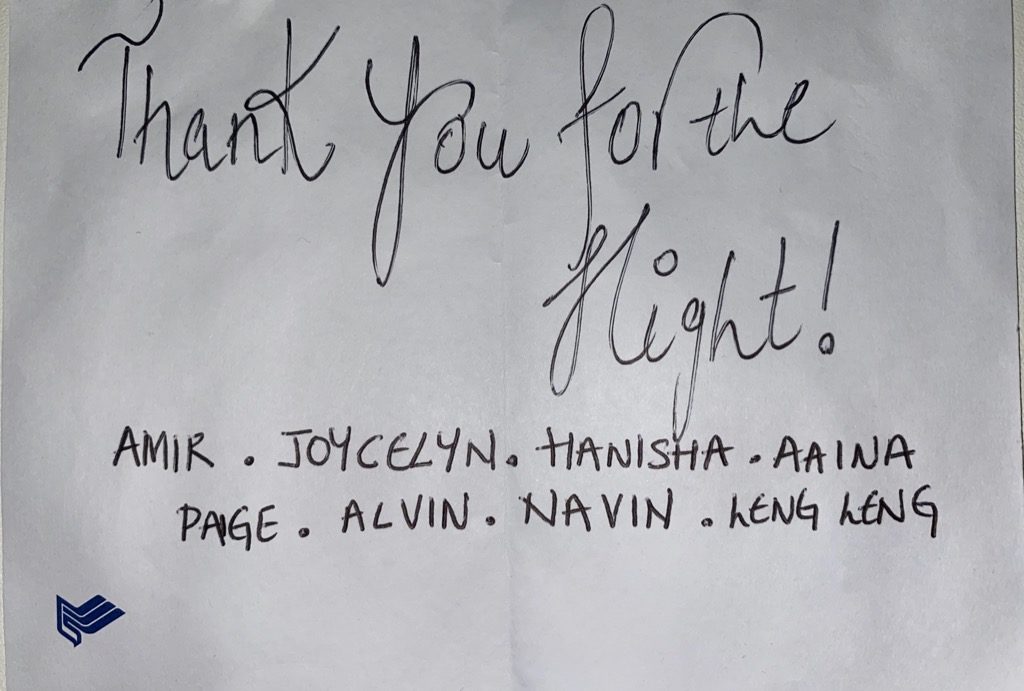 Thank You for the
flight!
AMIR . JOYCELYN . HANISHA . AAINA
PAIGE . ALVIN . NAVIN . LENG LENG